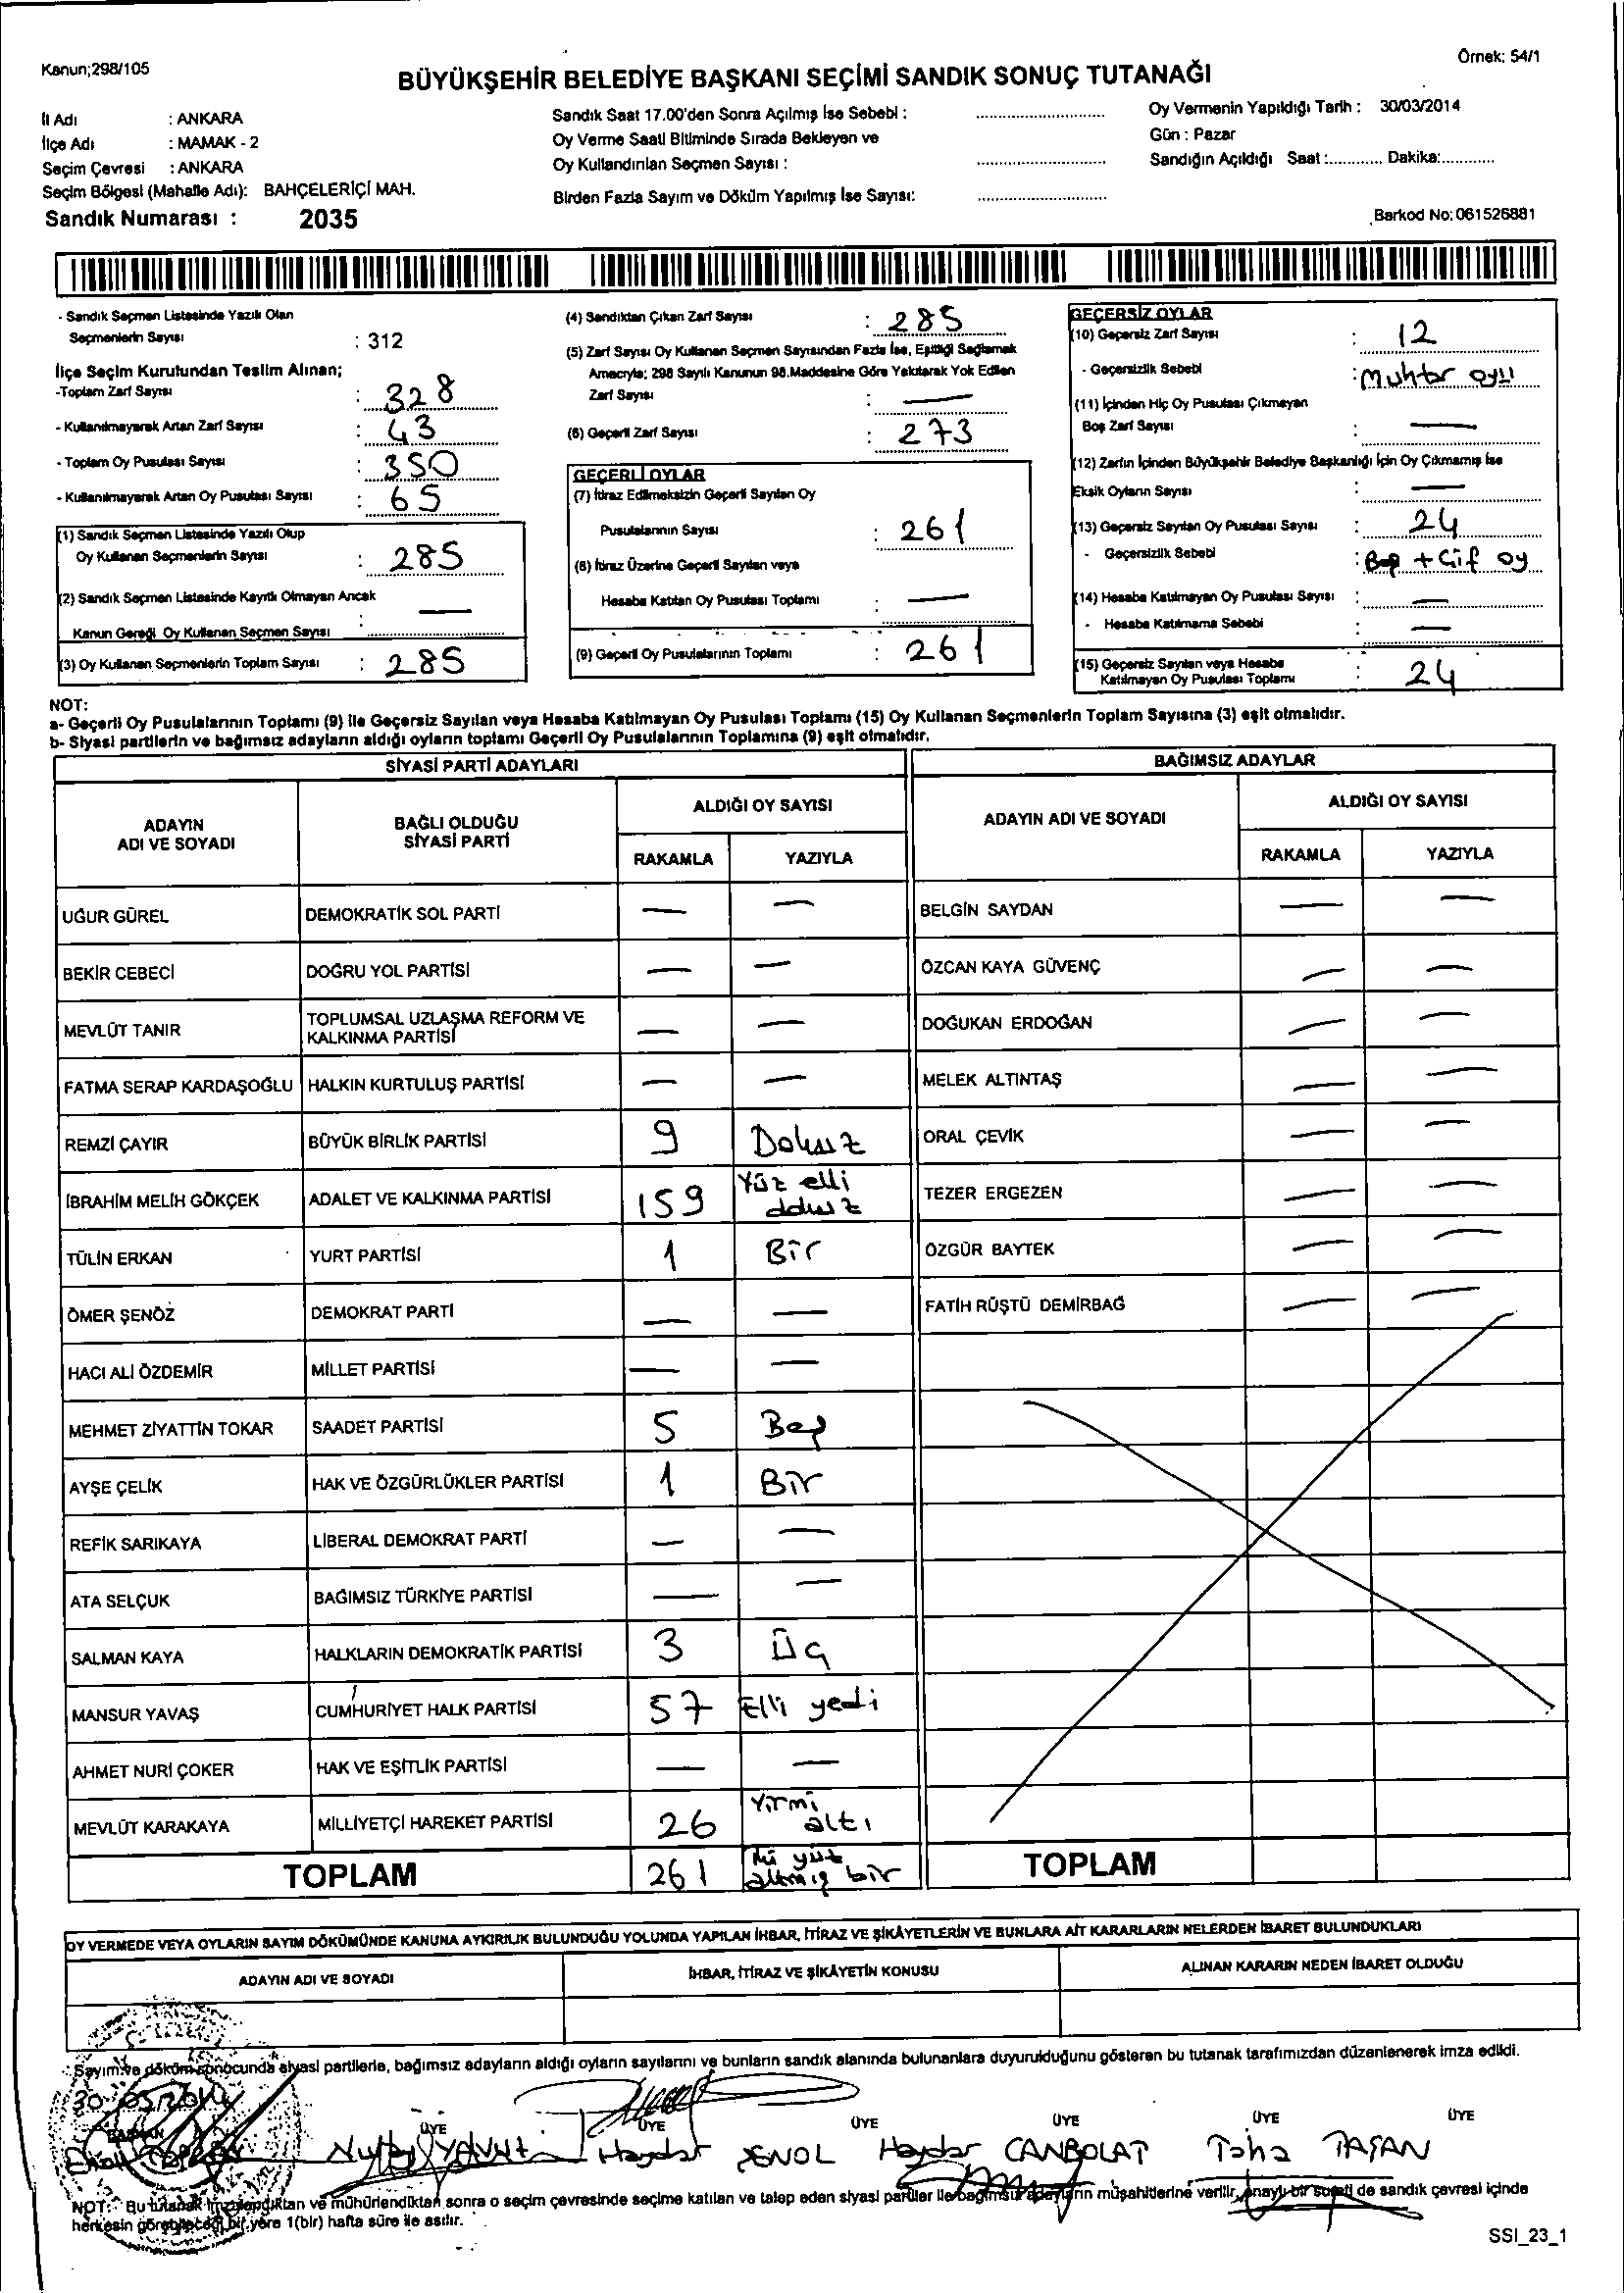 Kanun;298/105
Örnek: 54/1
BÜYÜKŞEHİR BELEDİYE BAŞKANI SEÇİMİ SANDIK SONUÇ TUTANAĞI
İl Adı : ANKARA
İlçe Adı : MAMAK - 2
Seçim Çevresi : ANKARA
Seçim Bölgesi (Mahalle Adı): BAHÇELERİÇİ MAH.
Sandık Numarası : 2035
Sandık Saat 17.00'den Sonra Açılmış İse Sebebi :
Oy Verme Saati Bitiminde Sırada Bekleyen ve
Oy Kullandırılan Seçmen Sayısı :
Birden Fazla Sayım ve Döküm Yapılmış İse Sayısı:
Oy Vermenin Yapıldığı Tarih : 30/03/2014
Gün : Pazar
Sandığın Açıldığı Saat :............ Dakika:............
Barkod No: 061526881
- Sandık Seçmen Listesinde Yazılı Olan
Seçmenlerin Sayısı : 312
İlçe Seçim Kurulundan Teslim Alınan;
-Toplam Zarf Sayısı : 328
- Kullanılmayarak Artan Zarf Sayısı : 43
- Toplam Oy Pusulası Sayısı : 350
- Kullanılmayarak Artan Oy Pusulası Sayısı : 65
(1) Sandık Seçmen Listesinde Yazılı Olup
Oy Kullanan Seçmenlerin Sayısı : 285
(2) Sandık Seçmen Listesinde Kayıtlı Olmayan Ancak
Kanun Gereği Oy Kullanan Seçmen Sayısı : —
(3) Oy Kullanan Seçmenlerin Toplam Sayısı : 285
(4) Sandıktan Çıkan Zarf Sayısı : 285
(5) Zarf Sayısı Oy Kullanan Seçmen Sayısından Fazla İse, Eşitliği Sağlamak
Amacıyla; 298 Sayılı Kanunun 98.Maddesine Göre Yakılarak Yok Edilen
Zarf Sayısı : —
(6) Geçerli Zarf Sayısı : 273
GEÇERLİ OYLAR
(7) İtiraz Edilmeksizin Geçerli Sayılan Oy
Pusulalarının Sayısı : 261
(8) İtiraz Üzerine Geçerli Sayılan veya
Hesaba Katılan Oy Pusulası Toplamı : —
(9) Geçerli Oy Pusulalarının Toplamı : 261
GEÇERSİZ OYLAR
(10) Geçersiz Zarf Sayısı : 12
- Geçersizlik Sebebi : Muhtar oyu
(11) İçinden Hiç Oy Pusulası Çıkmayan
Boş Zarf Sayısı : —
(12) Zarfın İçinden Büyükşehir Belediye Başkanlığı İçin Oy Çıkmamış İse
Eksik Oyların Sayısı : —
(13) Geçersiz Sayılan Oy Pusulası Sayısı : 24
- Geçersizlik Sebebi : Boş + Çif oy
(14) Hesaba Katılmayan Oy Pusulası Sayısı : —
- Hesaba Katılmama Sebebi : —
(15) Geçersiz Sayılan veya Hesaba
Katılmayan Oy Pusulası Toplamı : 24
NOT:
a- Geçerli Oy Pusulalarının Toplamı (9) ile Geçersiz Sayılan veya Hesaba Katılmayan Oy Pusulası Toplamı (15) Oy Kullanan Seçmenlerin Toplam Sayısına (3) eşit olmalıdır.
b- Siyasi partilerin ve bağımsız adayların aldığı oyların toplamı Geçerli Oy Pusulalarının Toplamına (9) eşit olmalıdır.
SİYASİ PARTİ ADAYLARI
ADAYIN ADI VE SOYADI
BAĞLI OLDUĞU SİYASİ PARTİ
ALDIĞI OY SAYISI
RAKAMLA YAZIYLA
BAĞIMSIZ ADAYLAR
ADAYIN ADI VE SOYADI
ALDIĞI OY SAYISI
RAKAMLA YAZIYLA
UĞUR GÜREL DEMOKRATİK SOL PARTİ — — BELGİN SAYDAN — —
BEKİR CEBECİ DOĞRU YOL PARTİSİ — — ÖZCAN KAYA GÜVENÇ — —
MEVLÜT TANIR TOPLUMSAL UZLAŞMA REFORM VE KALKINMA PARTİSİ — — DOĞUKAN ERDOĞAN — —
FATMA SERAP KARDAŞOĞLU HALKIN KURTULUŞ PARTİSİ — — MELEK ALTINTAŞ — —
REMZİ ÇAYIR BÜYÜK BİRLİK PARTİSİ 9 Dokuz ORAL ÇEVİK — —
İBRAHİM MELİH GÖKÇEK ADALET VE KALKINMA PARTİSİ 159 Yüz elli dokuz TEZER ERGEZEN — —
TÜLİN ERKAN YURT PARTİSİ 1 Bir ÖZGÜR BAYTEK — —
ÖMER ŞENÖZ DEMOKRAT PARTİ — — FATİH RÜŞTÜ DEMİRBAĞ — —
HACI ALİ ÖZDEMİR MİLLET PARTİSİ — —
MEHMET ZİYATTİN TOKAR SAADET PARTİSİ 5 Beş
AYŞE ÇELİK HAK VE ÖZGÜRLÜKLER PARTİSİ 1 Bir
REFİK SARIKAYA LİBERAL DEMOKRAT PARTİ — —
ATA SELÇUK BAĞIMSIZ TÜRKİYE PARTİSİ — —
SALMAN KAYA HALKLARIN DEMOKRATİK PARTİSİ 3 Üç
MANSUR YAVAŞ CUMHURİYET HALK PARTİSİ 57 Elli yedi
AHMET NURİ ÇOKER HAK VE EŞİTLİK PARTİSİ — —
MEVLÜT KARAKAYA MİLLİYETÇİ HAREKET PARTİSİ 26 Yirmi altı
TOPLAM 261 İki yüz altmış bir TOPLAM
OY VERMEDE VEYA OYLARIN SAYIM DÖKÜMÜNDE KANUNA AYKIRILIK BULUNDUĞU YOLUNDA YAPILAN İHBAR, İTİRAZ VE ŞİKÂYETLERİN VE BUNLARA AİT KARARLARIN NELERDEN İBARET BULUNDUKLARI
ADAYIN ADI VE SOYADI İHBAR, İTİRAZ VE ŞİKÂYETİN KONUSU ALINAN KARARIN NEDEN İBARET OLDUĞU
Sayım ve döküm sonucunda siyasi partilerle, bağımsız adayların aldığı oyların sayılarını ve bunların sandık alanında bulunanlara duyurulduğunu gösteren bu tutanak tarafımızdan düzenlenerek imza edildi.
30.03.2014
BAŞKAN ÜYE ÜYE ÜYE ÜYE ÜYE ÜYE
YAVUZ Haydar ŞENOL Haydar CANBOLAT Taha TAŞAN
NOT: Bu tutanak imzalandıktan ve mühürlendikten sonra o seçim çevresinde seçime katılan ve talep eden siyasi partiler ile bağımsız adayların müşahitlerine verilir, onaylı bir sureti de sandık çevresi içinde
herkesin görebileceği bir yere 1(bir) hafta süre ile asılır.
SSI_23_1